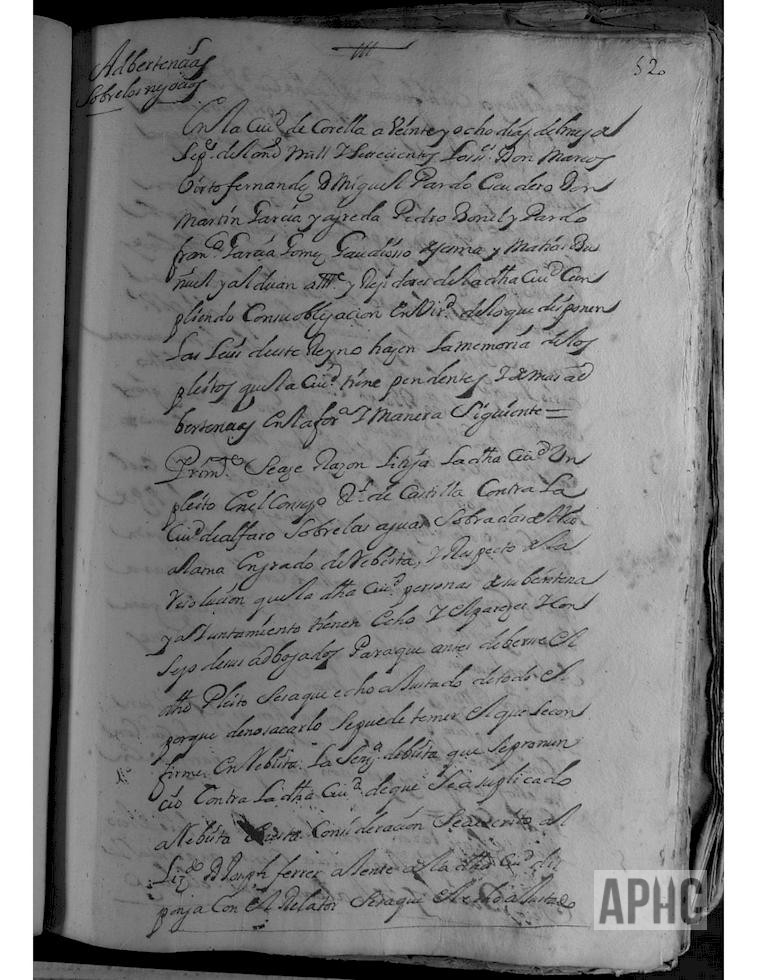 Adbertencias
Sobre los nejocios
52
En la Ciud de Corella a Veinte y ocho dias del mes de
Sepe del año mill Y Seiscientos Don Marcos
Virto fernandez D Miguel Pardo Escudero Don
Martin Garcia y agreda Pedro Bonel y Pardo
franco Garcia Gomez Gaudioso de sesma y Mathias Bu
ñuel y alduan Alles y Rejidores de la dha Ciud Cun
pliendo Con su obligacion En Vird de lo que disponen
Las Leies deeste Reyno hazen La memoria de los
pleitos que la Ciud tiene pendentes Y demas ad
bertencias En la fora Y Manera Siguiente =
Primte Seaze Razon Litija La dha Ciud Un
pleito En el Consejo Rl de Castilla Contra La
Ciud de alfaro Sobre las aguas Sobradas del Rio
alama En grado de Rebista, Y Respecto de la
Resolucion que la dha Ciud personas de su beintena
y aJuntamiento tienen Echo Y El parezer Y Con
Sejo de sus adbogados Para que antes de berse El
dho Pleito Se saque echo aJustado de todo El
porque de no sacarlo Se puede temer El que Se con
firme En Rebista La Sena de bista que Se pronun
ció Contra La dha Ciud de que Sea suplicado
a Rebista Consideracion Sea escrito al
Lizdo D Joseph ferrer aJente de la dha Ciud dis
ponja Con El Relator Se saque El echo aJustado
APHC